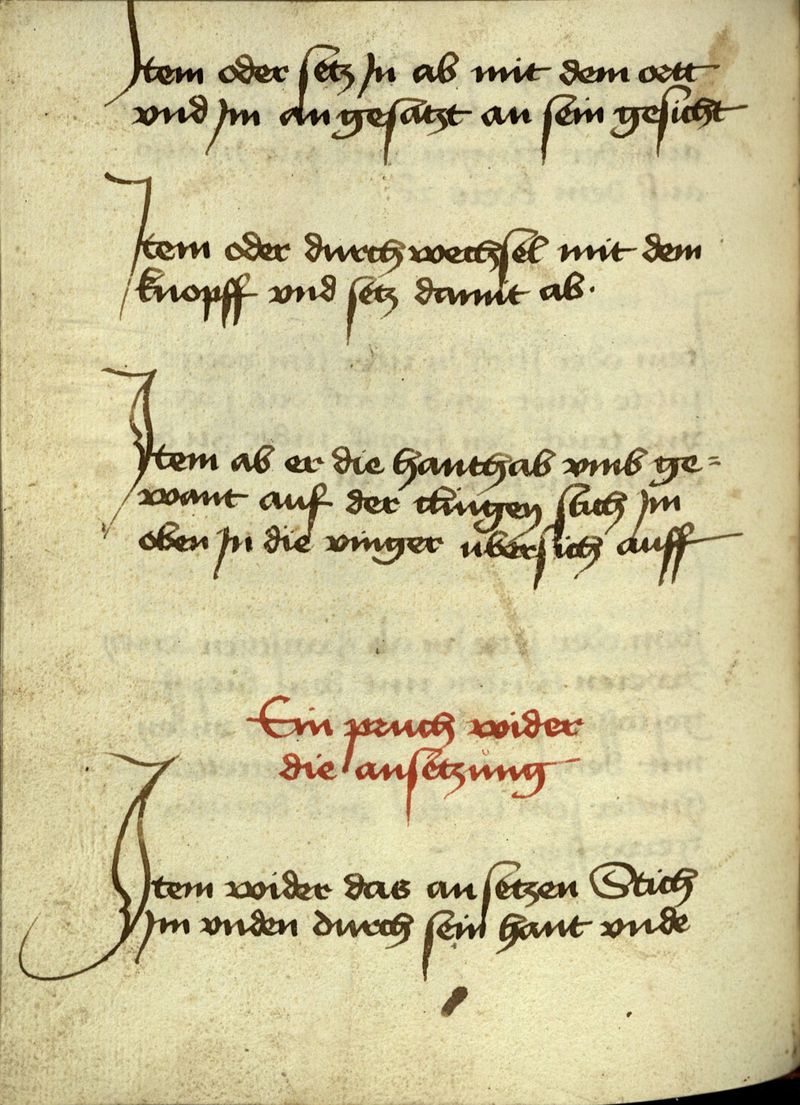 Item oder setz In ab mit dem oertt
vnd Im an gesatzt an sein gesicht
Item oder durch wechsel mit dem
knopff vnd setz damit ab.
Item ab er die hanthab vmb ge=
want auf der clingen stich Im
oben In die vinger übersich auff
Ein pruch wider
die ansetzung
Item wider das an setzen Stich
Im vnden durch sein hant vnde